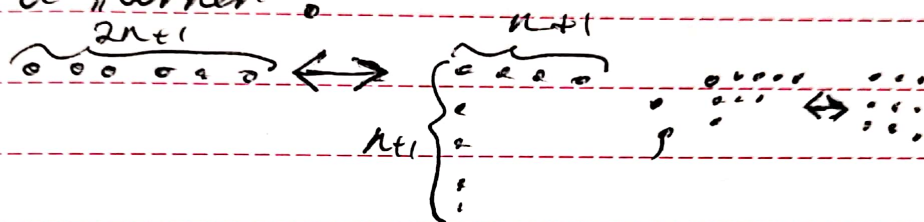 2n+1
n+1
n+1